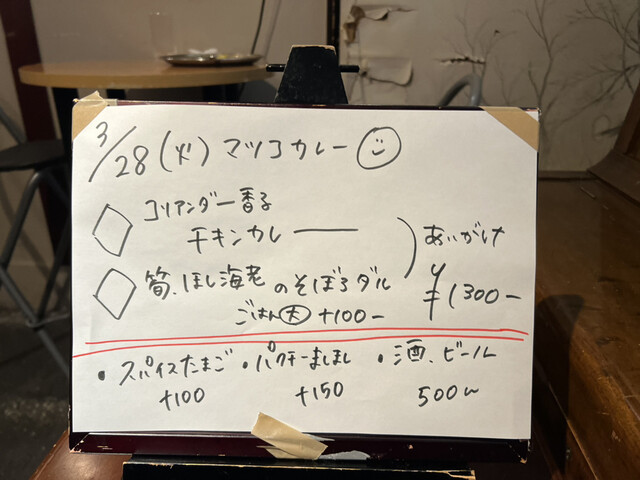 3/28(火) マツコカレー
コリアンダー香る
チキンカレー
あいがけ
筍、ほし海老のそぼろダル
¥1300-
ごはん大 +100-
・スパイスたまご ・パクチーましまし ・酒、ビール
+100 +150 500〜